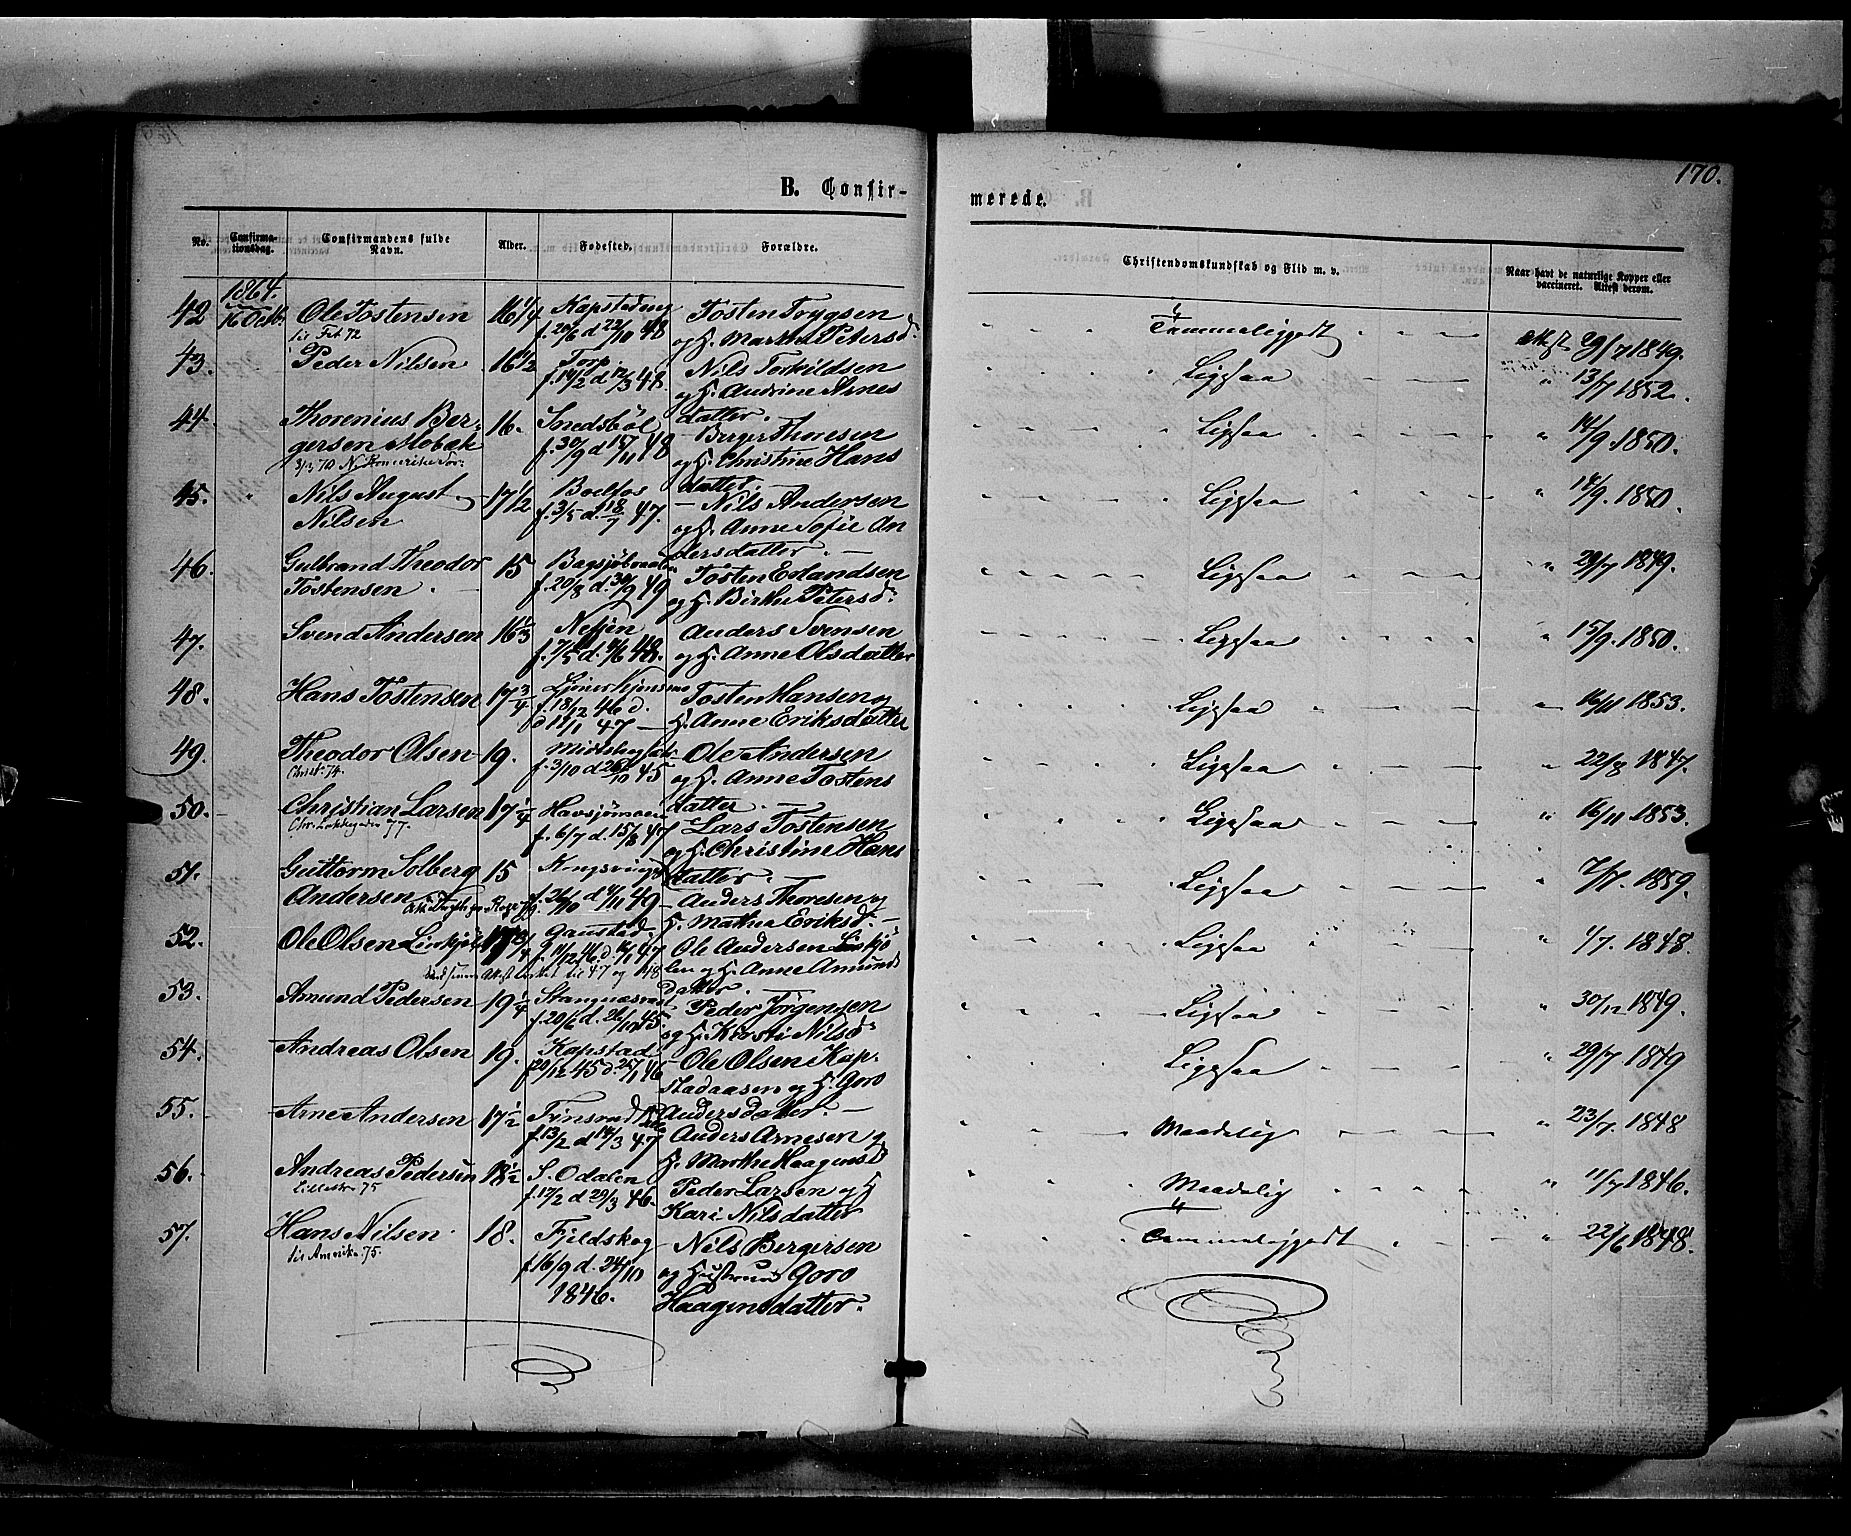 170.
B. Confir-
merede.
No. Confirma-tionsdag. Confirmandens fulde Navn. Alder. Fødested. Forældre. Christendomskundskab og Flid m. v. Naar havt de naturlige Kopper eller vaccineret. Attest derom.
1864.
42 16 Octbr Ole Tostensen 16 1/4 Kapstad Tosten Trygsen Temmeliggodt Attest 29/7 1849.
til Fet 72 f. 20/6 d 22/10 48 og H. Marthe Petersd:
43. Peder Nilsen 16 1/2 Torp Nils Torkildsen Ligesaa " 13/7 1852.
f. 14/2 d 12/3 48 og H. Andrine Arnes
datter.
44. Thorenius Ber- 16. Snedsbøl Berger Thoresen Ligesaa " 14/9. 1850.
gersen Mobæk f. 30/9 d 15/11 48 og H. Christine Hans
3/3 70 datter.
45. " Nils August 17 1/2 Boelfos Nils Andersen Ligesaa " 14/9. 1850.
Nilsen f. 3/5 d. 18/7 47. og H. Anne Sofie An
dersdatter.
46. Gulbrand Theodor 15 Tosten Erlandsen Ligesaa " 29/7 1849.
Tostensen f. 20/8 d. 30/9 49 og H. Birthe Petersd:
47. Svend Andersen 16 1/3 Anders Svensen Ligesaa " 15/9. 1850.
og H. Anne Olsdatter
48. Hans Tostensen 17 3/4 Tosten Hansen og Ligesaa 16/11 1853.
f. 18/12 46 d. H. Anne Eriksdatter
d 11/1 47
49. Theodor Olsen 19. Ole Andersen Ligesaa " 22/8 1847.
74. f. 3/10 d 26/10 45 og H. Anne Tostens
datter.
50. Christian Larsen 17 1/4 Havsjømoen Lars Tostensen Ligesaa " 16/11 1853.
77. f. 6/7 d. 15/8 47 og H. Christine Hans
datter.
51. Guttorm Solberg 15 Kongsvinger Anders Thoresen og Ligesaa " 7/7. 1859.
Andersen H. Mathea Eriksd:
52. Ole Olsen 17 3/4 Gaustad Ole Andersen Ligesaa " 4/7. 1848.
len og H. Anne Amunds
datter.
53. Amund Pedersen 19 1/4 Peder Jørgensen Ligesaa " 30/12 1849.
f. 20/6 d. og H. Kirsti Nilsd:
54. Andreas Olsen 19. Kapstad Ole Olsen Kap- Ligesaa " 29/7 1849
f 20/12 45 d. 25/1 46 stadaasen og H. Goro
Andersdatter.
55. Arne Andersen 17 1/2 Anders Arnesen og Maadelig " 23/7. 1848
f. 13/2 d 14/3 47 H. Marthe Haagensd
56. Andreas Pedersen 18 1/2 S. Odalen Peder Larsen og H Maadelig " 4/7 1846.
Lillestr 75 f. 17/2 d 29/3 46. Kari Nilsdatter
57. Hans Nilsen. 18. Fjeldskog Nils Bergersen Temmeliggodt " 22/6 1848.
til Amerika 75. f. 16/9 d. 24/10 og Hustrue Goro
1846. Haagensdatter.